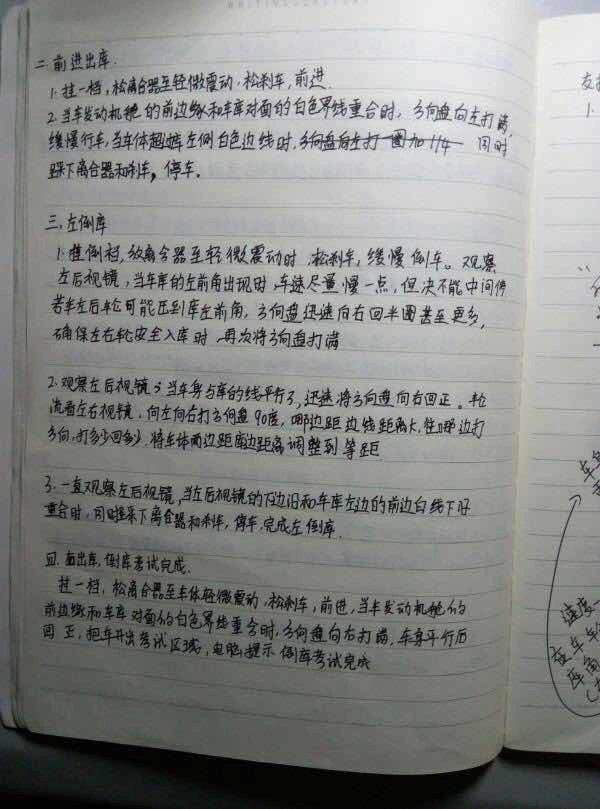 二.前进出库.
1.挂一档,松离合器至轻微震动,松刹车,前进.
2.当车发动机舱的前边缘和车库对面的白色界线重合时,方向盘向左打满,
缓慢行车,当车体超过左侧白色边线时,方向盘向左打一圈加114 同时
踩下离合器和刹车,停车.
三.左倒库
1.挂倒档,放离合器至轻微震动时,松刹车,缓慢倒车。观察
左后视镜,当车库的左前角出现时,车速尽量慢一点,但决不能中间停
若车左后轮可能压到库左前角,方向盘迅速向右回半圈甚至更多,
确保左右轮安全入库时,再次将方向盘打满
2.观察左后视镜,当车身与库的线平行了,迅速将方向盘向右回正。轮
流看左右视镜,向左向右打方向盘90度,哪边距边线距离长,往哪边打
方向,打多少回多少.将车体两边距库边距离调整到等距
3.一直观察左后视镜,当左后视镜的下边沿和车库左边的前边白线下好
重合时,同时踩下离合器和刹车,停车.完成左倒库.
四.出库,倒库考试完成.
挂一档,松离合器至车体轻微震动,松刹车,前进,当车发动机舱的
前边缘和车库对面的白色界线重合时,方向盘向右打满,车身平行后
回正,把车开出考试区线,电脑提示倒库考试完成
友
1.
车
速度一
在车轮
库角